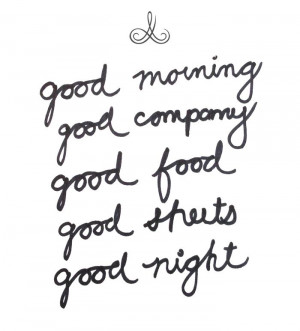 good morning
good company
good food
good sheets
good night